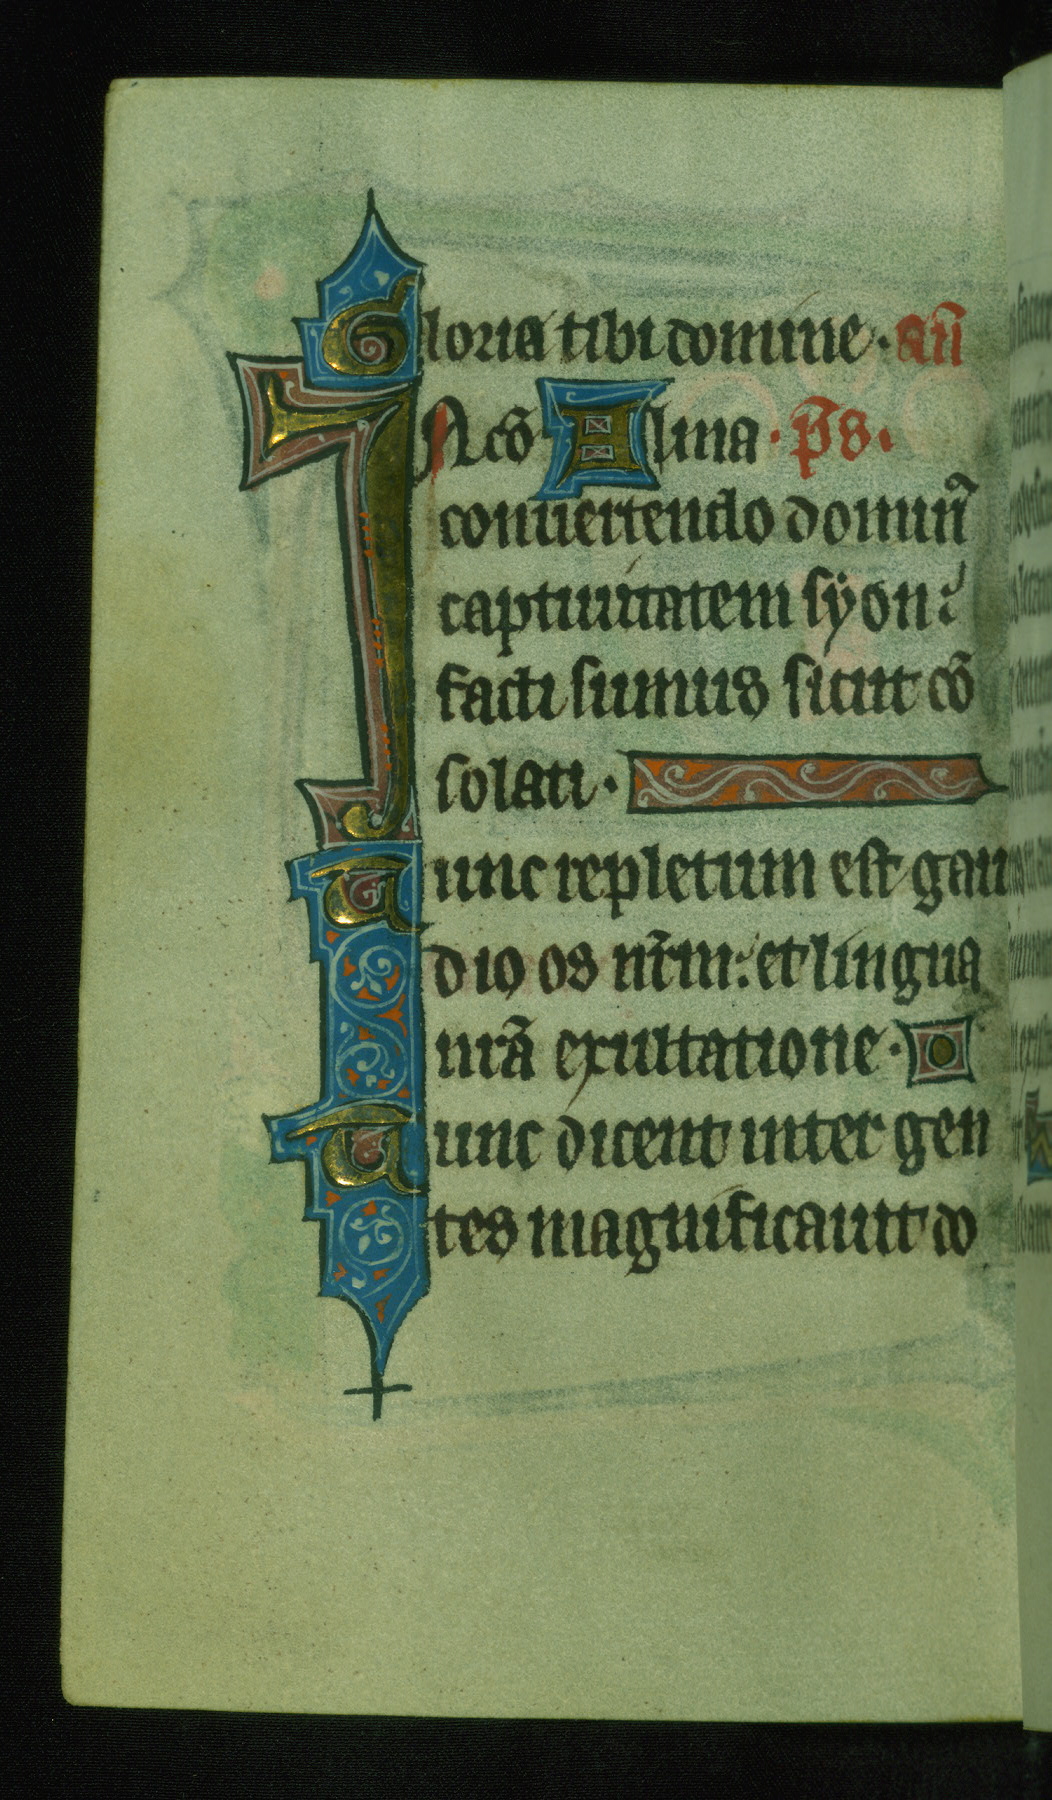 Gloria tibi domine. an̄
IN cō Alma. p̄s.
conuertendo domin̄
captiuitatem syon:
facti sumus sicut cō
solati.
Tunc repletum est gau
dio os nr̄m: et lingua
nrā exultatione.
Tunc dicent inter gen
tes magnificauit do